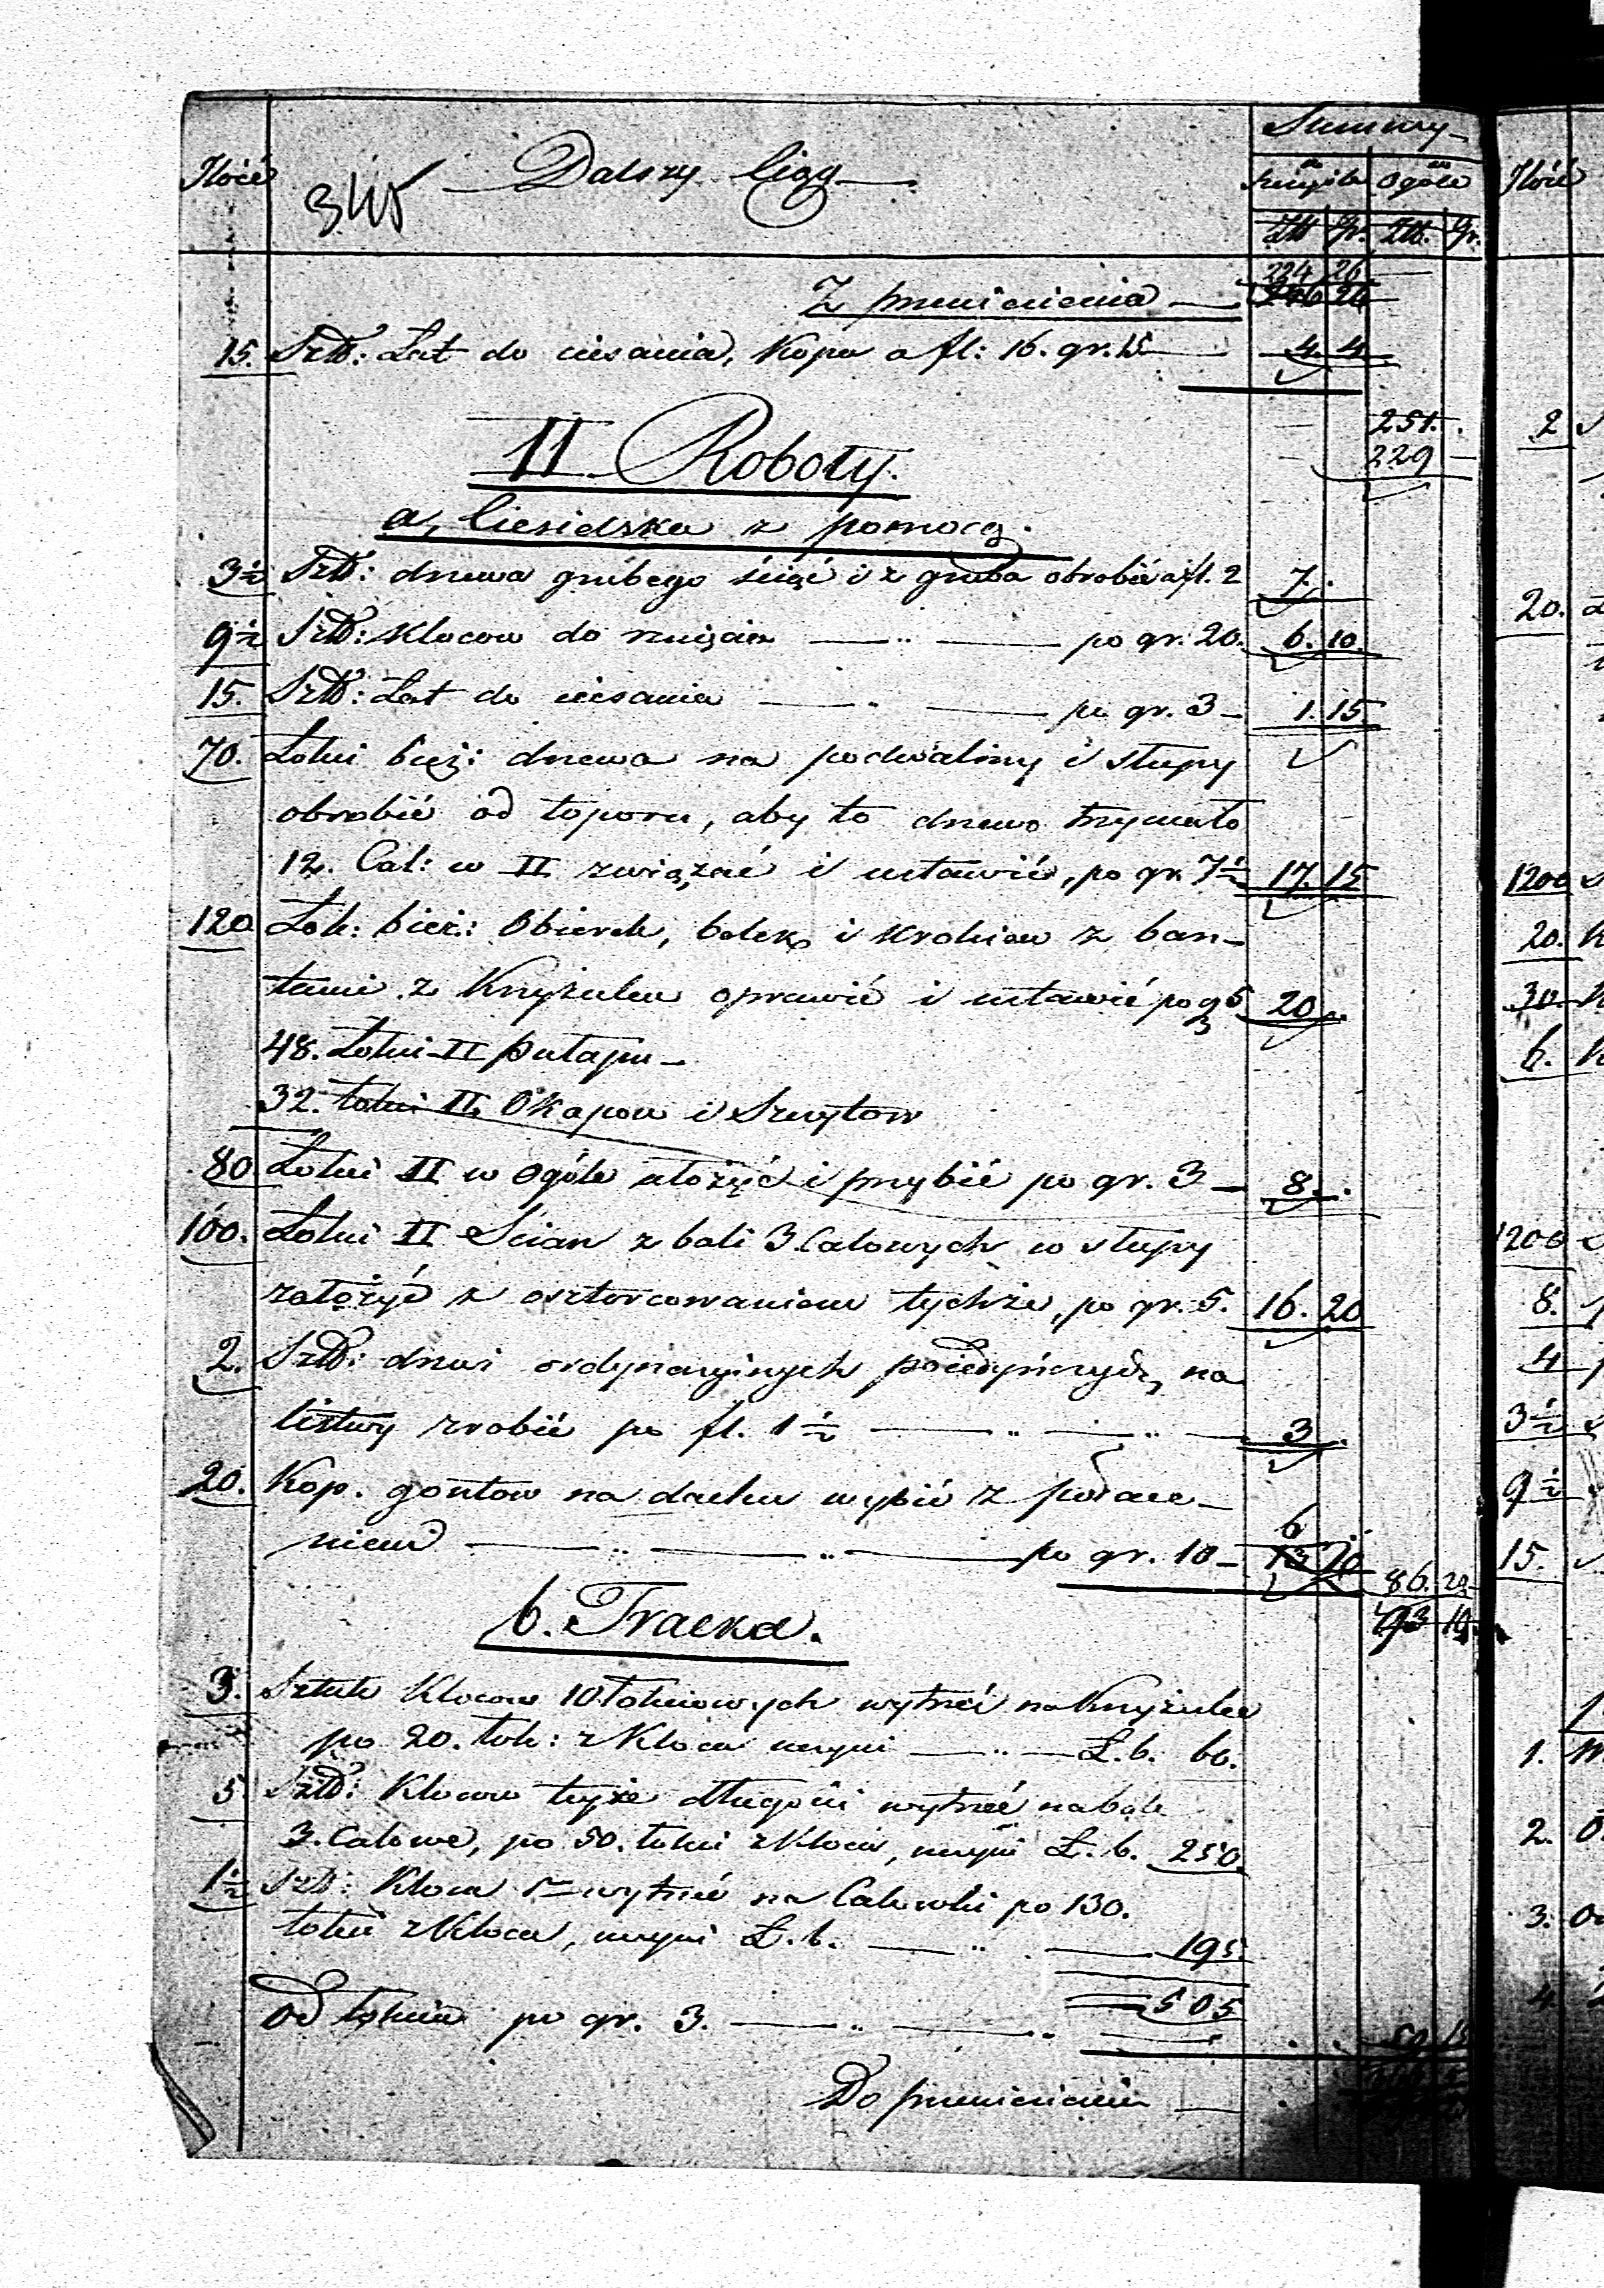 Summy
Ilość Dalszy Ciąg w szczególe w Ogóle Ilość
Złł gr. Złł. gr.
224 26
Z przeniesienia
15. Sztt: Łat do ciesania, Kopa a fl: 16. gr. 15 4. 4
251.
II Roboty. 229 2
a, Ciesielska z pomocą.
3½ Sztt: drzewa grubego ściąć i z gruba obrobić a fl. 2 7.
9½ Sztt: Kloców do rznięcia po gr. 20. 6. 10. 20.
15. Sztt: Łat do ciesania po gr. 3 1. 15
70. Łokci bież: drzewa na podwaliny i słupy
obrobić od toporu, aby to drzewo trzymało
12. Cal: w II związać i ustawić, po gr. 7½ 17. 15 1200
120 Łok: bież: Obierek, belek i Krokiew z ban- 20.
tami z Kryżulcu oprawić i ustawić po g 5 20 30.
48. Łokci II pułapu 6.
32. łokci II Okapow i Szczytow
80. Łokci II w Ogóle ułożyć i przybić po gr. 3 8.
100. Łokci II Ścian z bali 3 Calowych w słupy 1200
założyć z osztorcowaniem tychże, po gr. 5. 16. 20 8.
2. Sztt: drzwi ordynaryinych poiedyńczych, na 4
listwy zrobić po fl. 1½ 3 3½
20. Kop. gontow na dachu wybić z 9½
niem po gr. 10 6 15.
86. 20
b. Tracka. 93 10
3. Sztuk Klocow 10 łokciowych wytrzeć na Kryżulce
po 20. łok: z Kloca czyni Ł. b. 60. 1.
5. Sztt: Klocow teyże długości wytrzeć na bale
3. Calowe, po 50. łokci z Kloca, czyni Ł. b. 250. 2.
1½ Szt: Kloca wytrzeć na Calowki po 130.
łokci z Kloca, czyni Ł. b. 195 3.
505 4.
Od łokcia po gr. 3. 50 15
Do przeniesienia